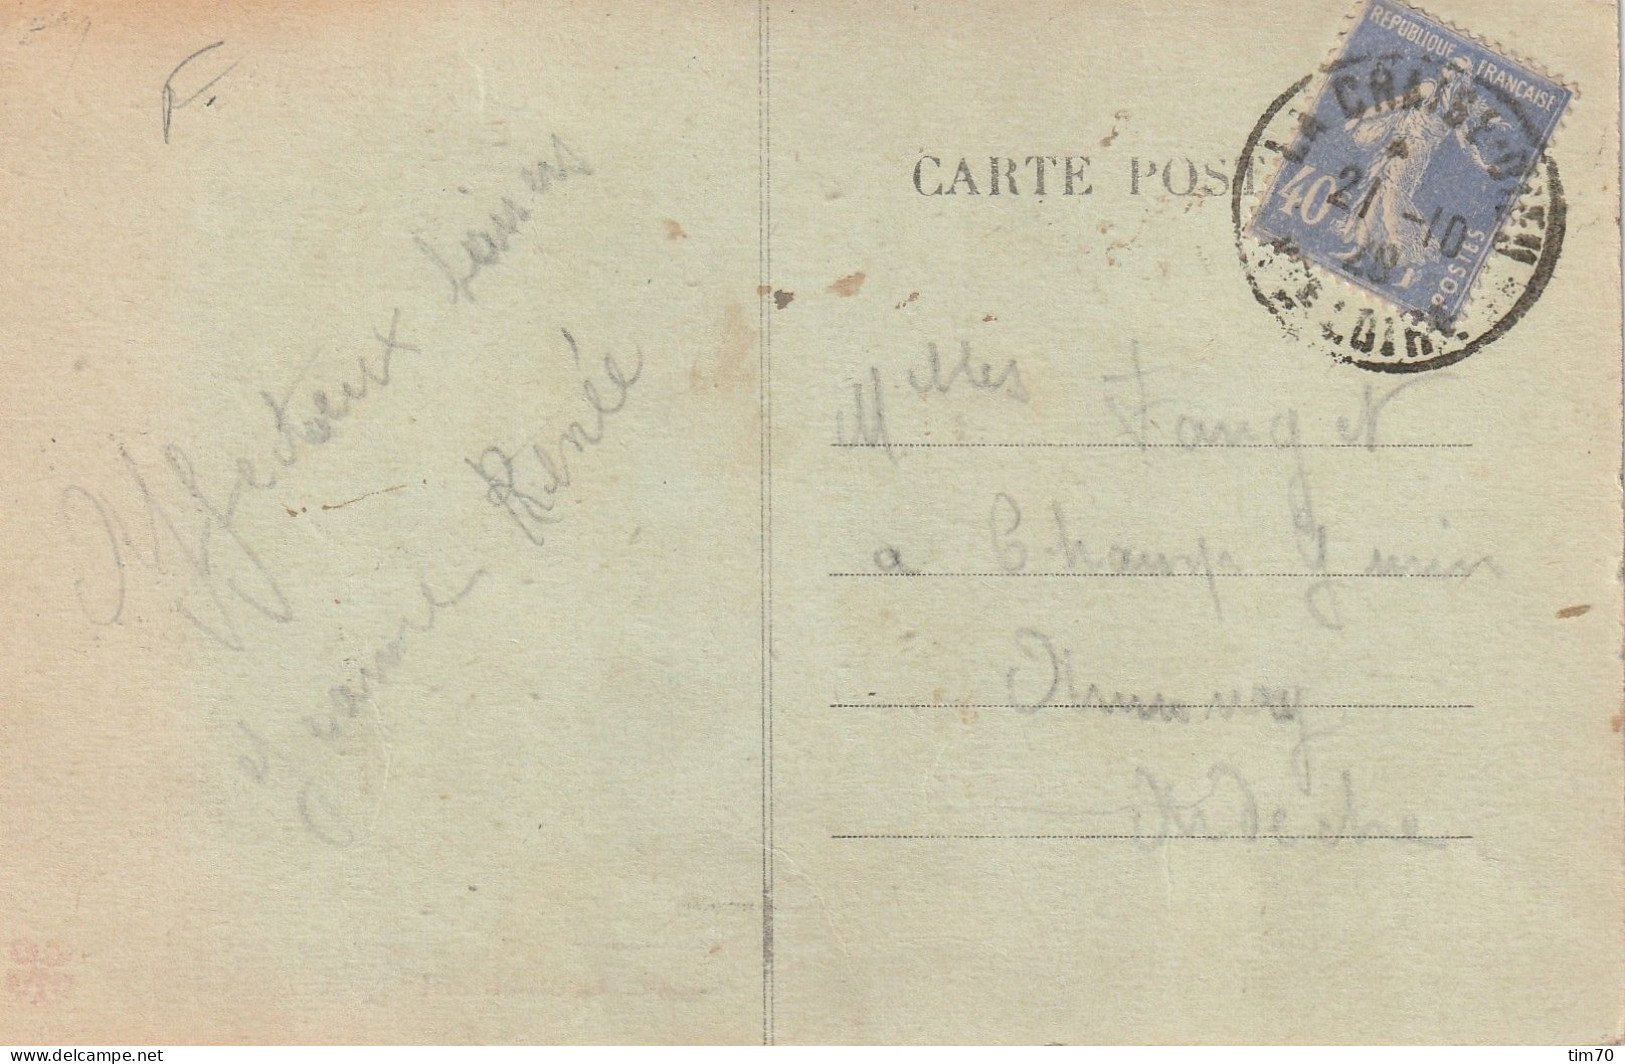 F.
Affectueux baisers
et
Renée
CARTE POST
RÉPUBLIQUE FRANÇAISE
40c
POSTES
LA CHAISE-D
21 -10
29
Hte LOIRE
Melles Fanget
a Champ Juvin
Annonay
Ardèche
tim70